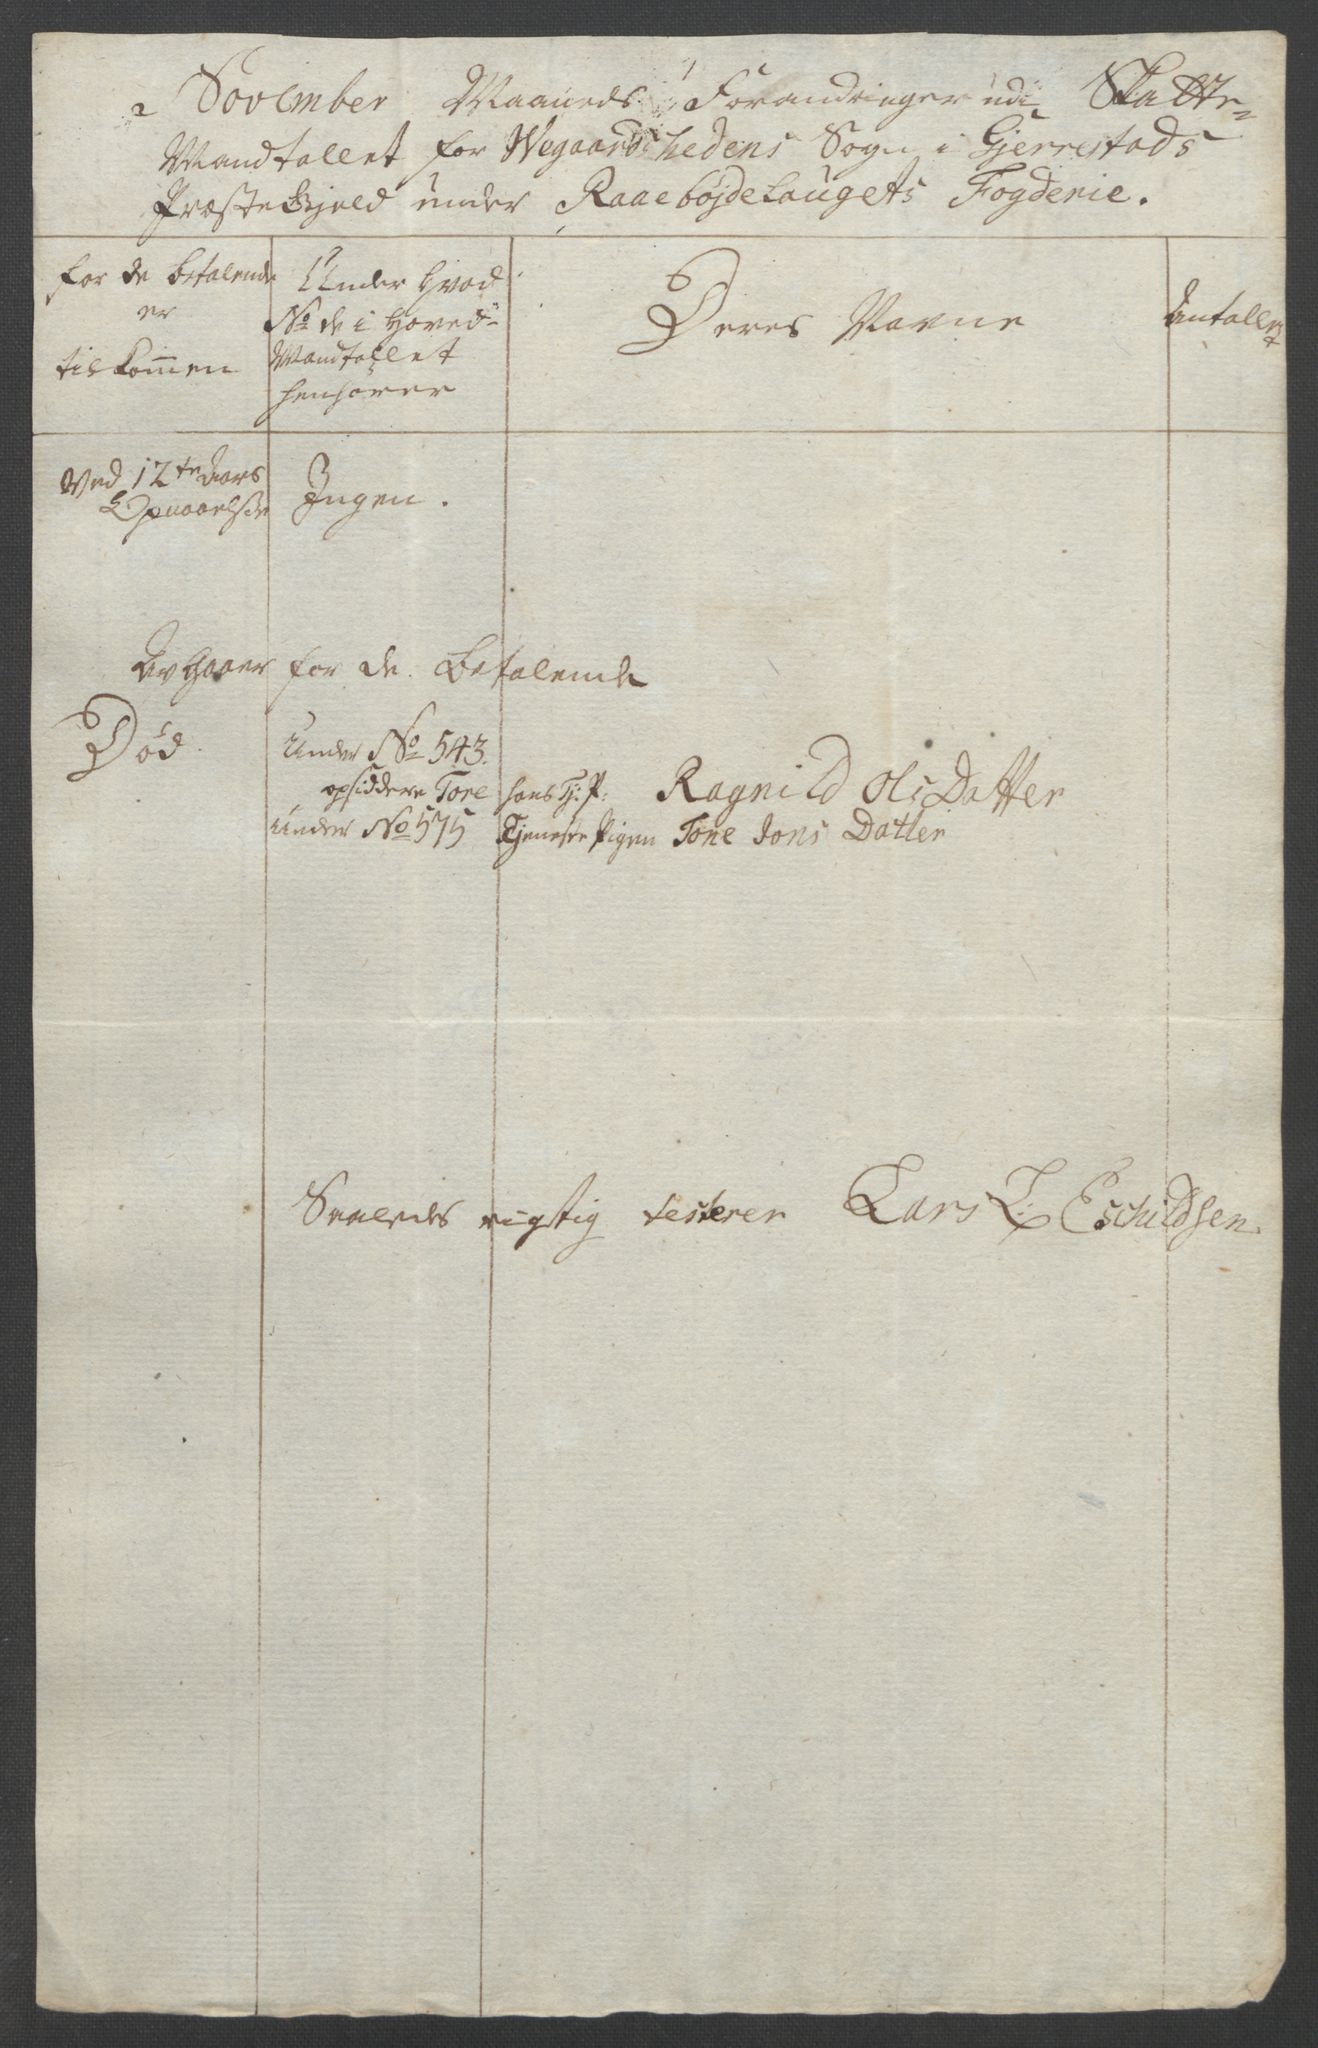 November Maaneds Forandringer udi Skatte-
Mandtallet for Wegaardshedens Sogn i Gjerrestads
Præstegjeld under Raaebøjdelaugets Fogderie.
for de betalende
er
tilkommen
Under hvad
No de i Hoved-
Mandtallet
henhører
Deres Navne
Antallet
Ved 12te Aars
Opnaaelse
Ingen.
Avgaaer for de Betalende
Død
Under No 543.
opsiddere Tore hans Tj: P: Ragnild Ols Datter
Under No 575 Tjeneste Pigen Tone Jons Datter
Saaledes rigtig testerer Lars L: Eschildsen